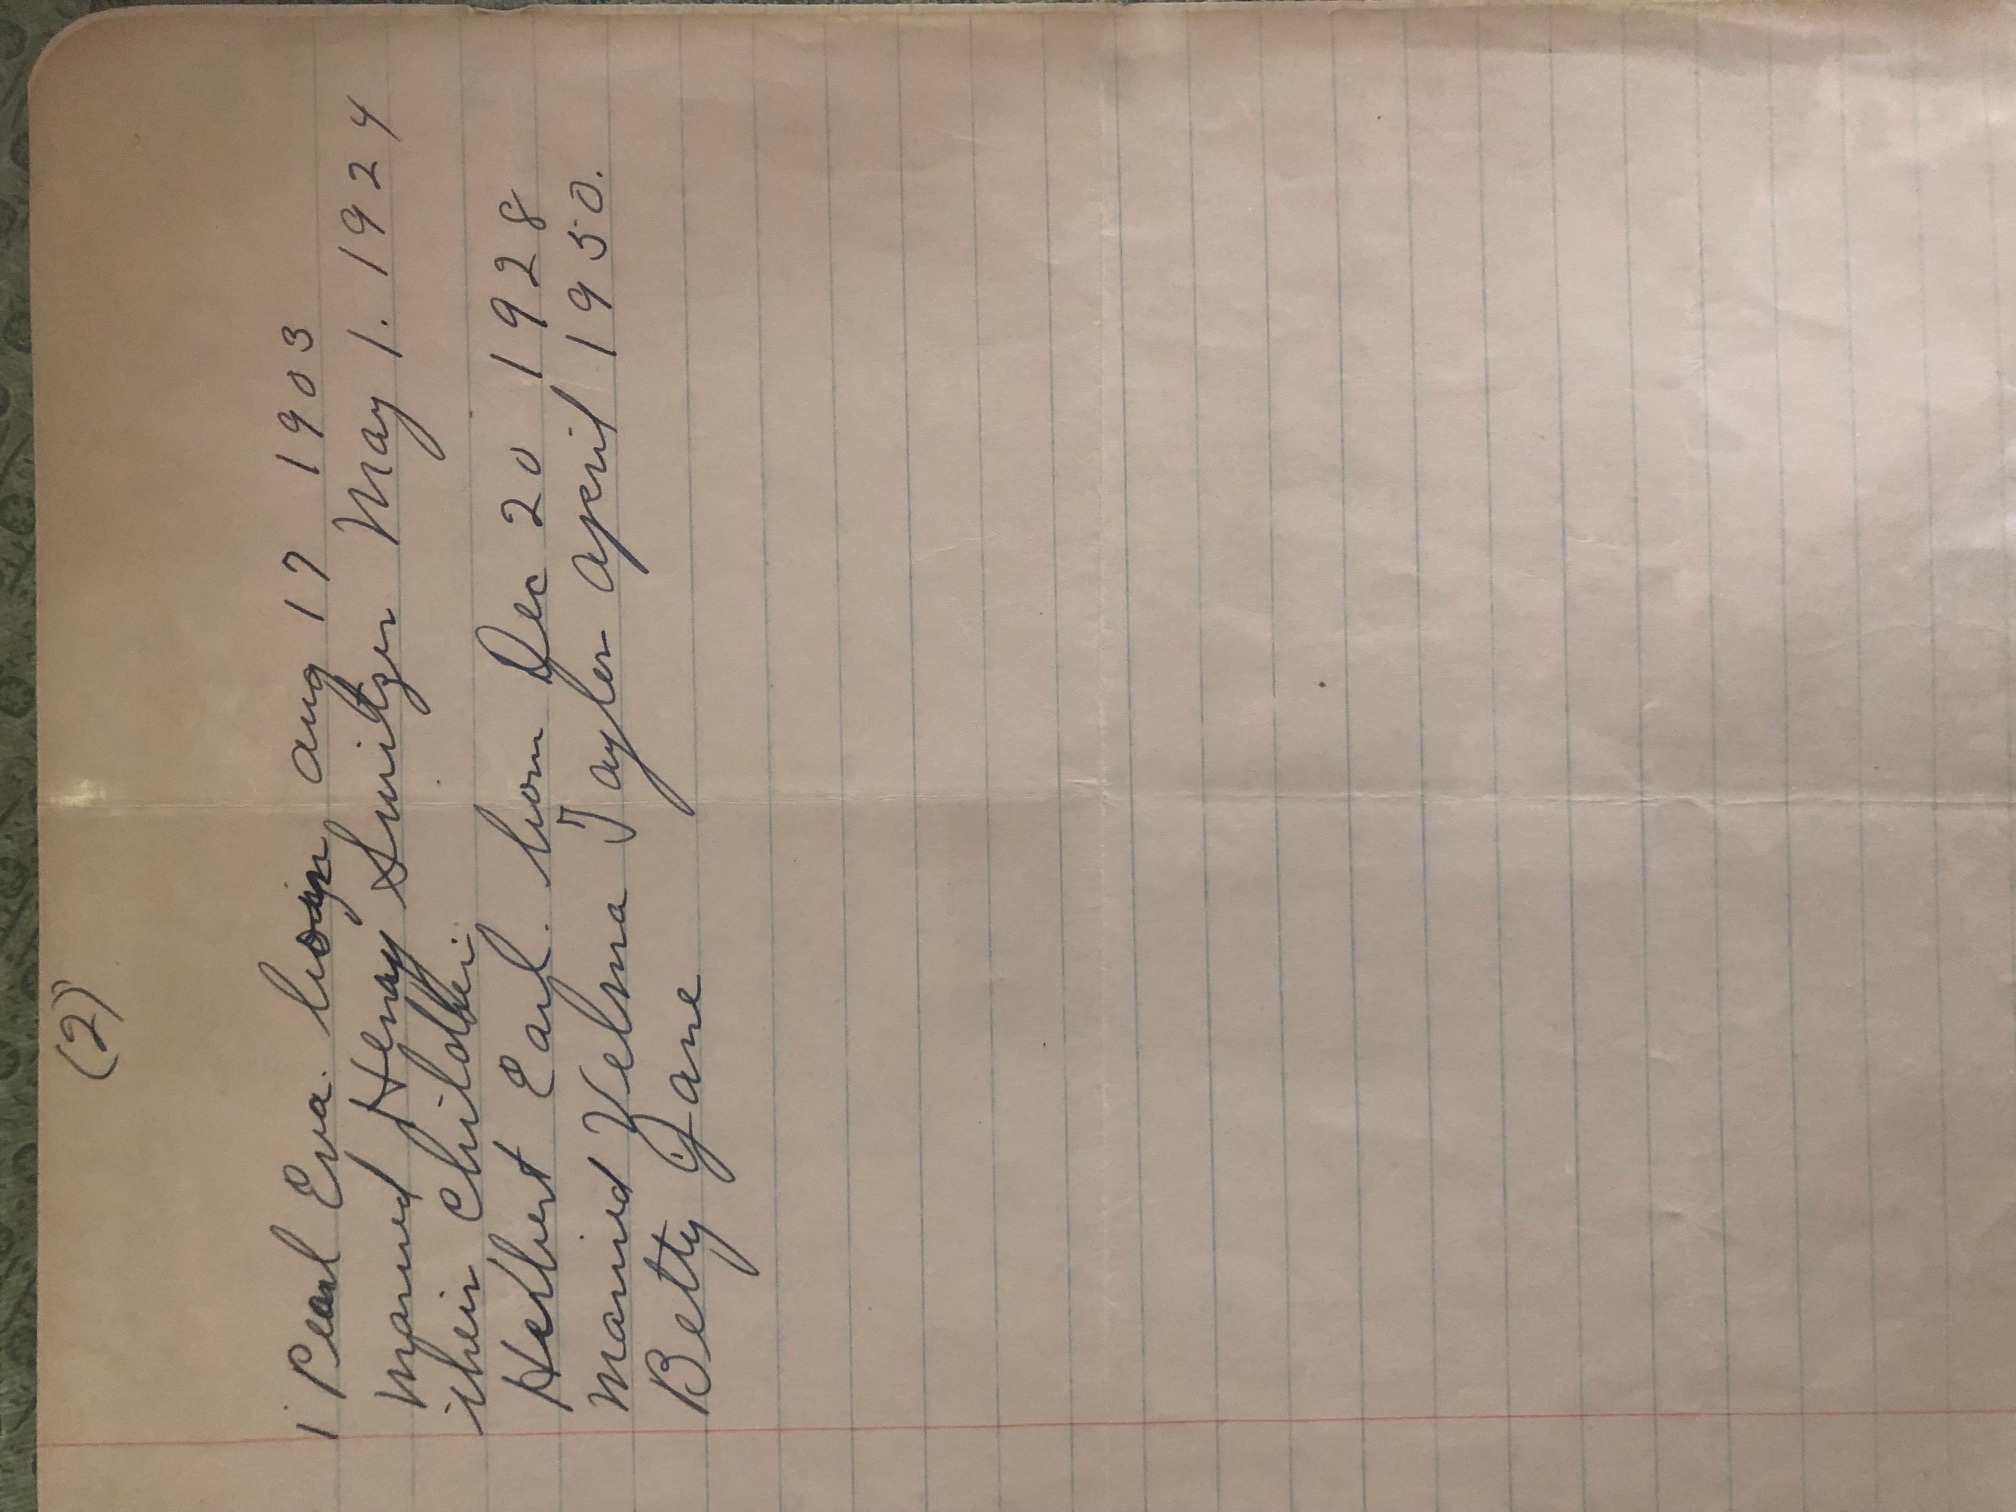 (2)
1 Pearl Eva. born aug 17 1903
Married Henry Switzer May 1. 1924
their Children
Helbert Earl. born Dec 20 1928
Married Velma Taylor april 1950.
Betty Jane